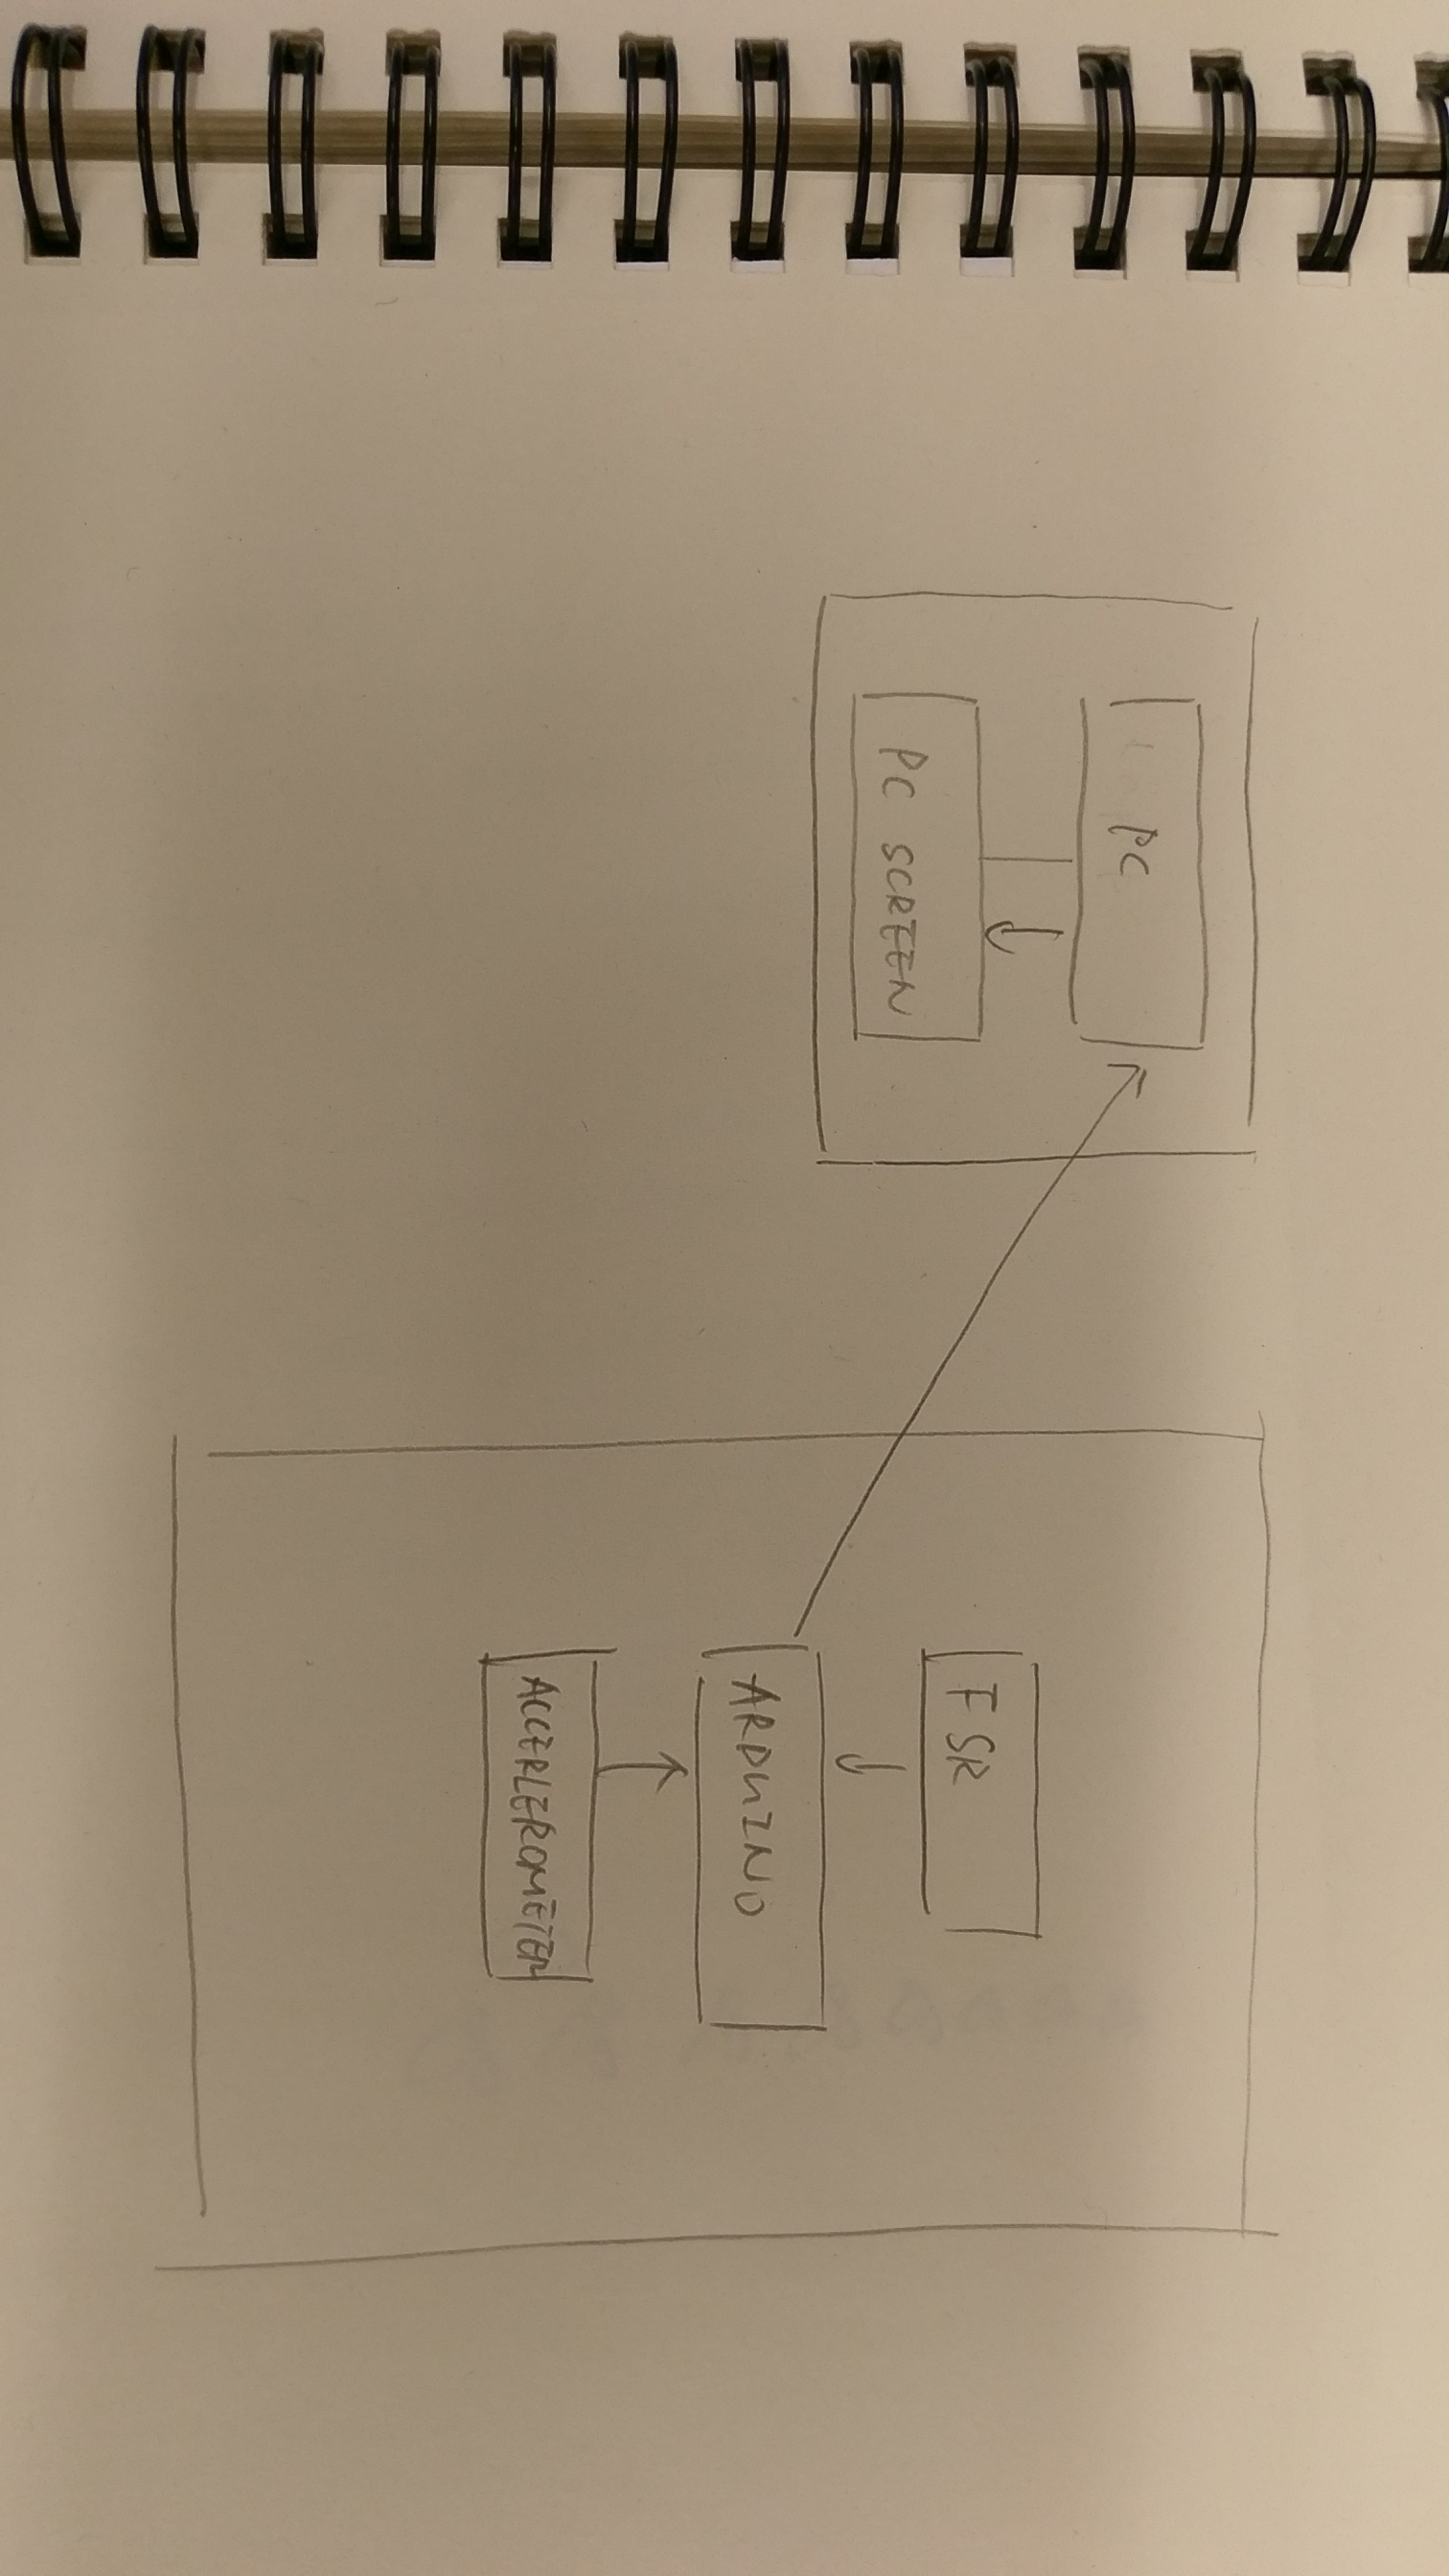 PC
PC SCREEN
FSR
ARDUINO
ACCERLEROMETER